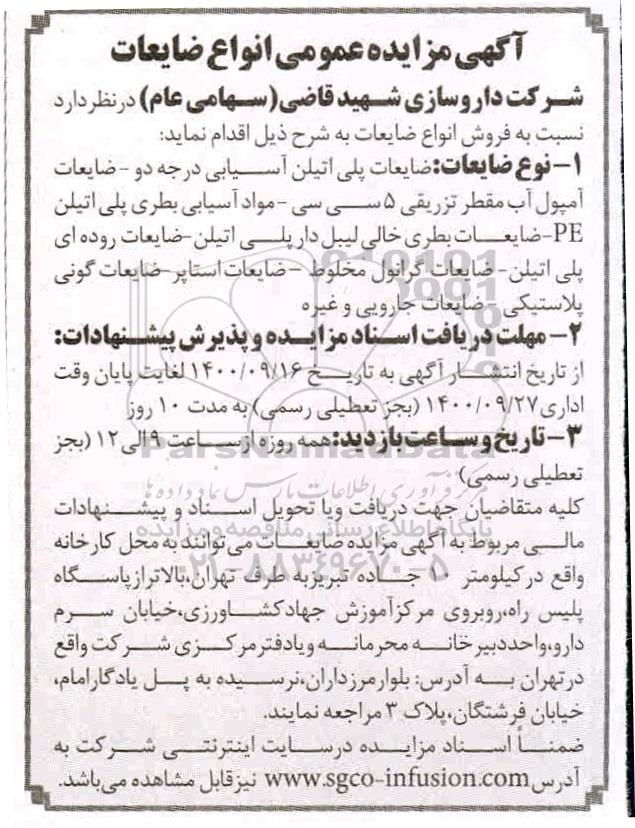 آگهی مزایده عمومی انواع ضایعات
شرکت داروسازی شهید قاضی (سهامی عام) در نظر دارد
نسبت به فروش انواع ضایعات به شرح ذیل اقدام نماید:
۱- نوع ضایعات: ضایعات پلی اتیلن آسیابی درجه دو - ضایعات
آمپول آب مقطر تزریقی ۵ سی سی - مواد آسیابی بطری پلی اتیلن
PE- ضایعات بطری خالی لیبل دار پلی اتیلن - ضایعات روده ای
پلی اتیلن - ضایعات گرانول مخلوط - ضایعات استاپر - ضایعات گونی
پلاستیکی - ضایعات جارویی و غیره
۲- مهلت دریافت اسناد مزایده و پذیرش پیشنهادات:
از تاریخ انتشار آگهی به تاریخ ۱۴۰۰/۰۹/۱۶ لغایت پایان وقت
اداری ۱۴۰۰/۰۹/۲۷ (بجز تعطیلی رسمی) به مدت ۱۰ روز
۳- تاریخ و ساعت بازدید: همه روزه از ساعت ۹ الی ۱۲ (بجز
تعطیلی رسمی)
کلیه متقاضیان جهت دریافت ویا تحویل اسناد و پیشنهادات
مالی مربوط به آگهی مزایده ضایعات می توانند به محل کارخانه
واقع در کیلومتر ۱۰ جاده تبریز به طرف تهران، بالاتر از پاسگاه
پلیس راه، روبروی مرکز آموزش جهاد کشاورزی، خیابان سرم
دارو، واحد دبیر خانه محرمانه و یا دفتر مرکزی شرکت واقع
در تهران به آدرس: بلوار مرزداران، نرسیده به پل یادگار امام،
خیابان فرشتگان، پلاک ۳ مراجعه نمایند.
ضمناً اسناد مزایده در سایت اینترنتی شرکت به
آدرس www.sgco-infusion.com نیز قابل مشاهده می باشد.
ParsNamadData
مرکز فرآوری اطلاعات پارس نماد داده ها
پایگاه اطلاع رسانی مناقصه و مزایده
۰۲۱-۸۸۳۴۹۶۷۰-۵